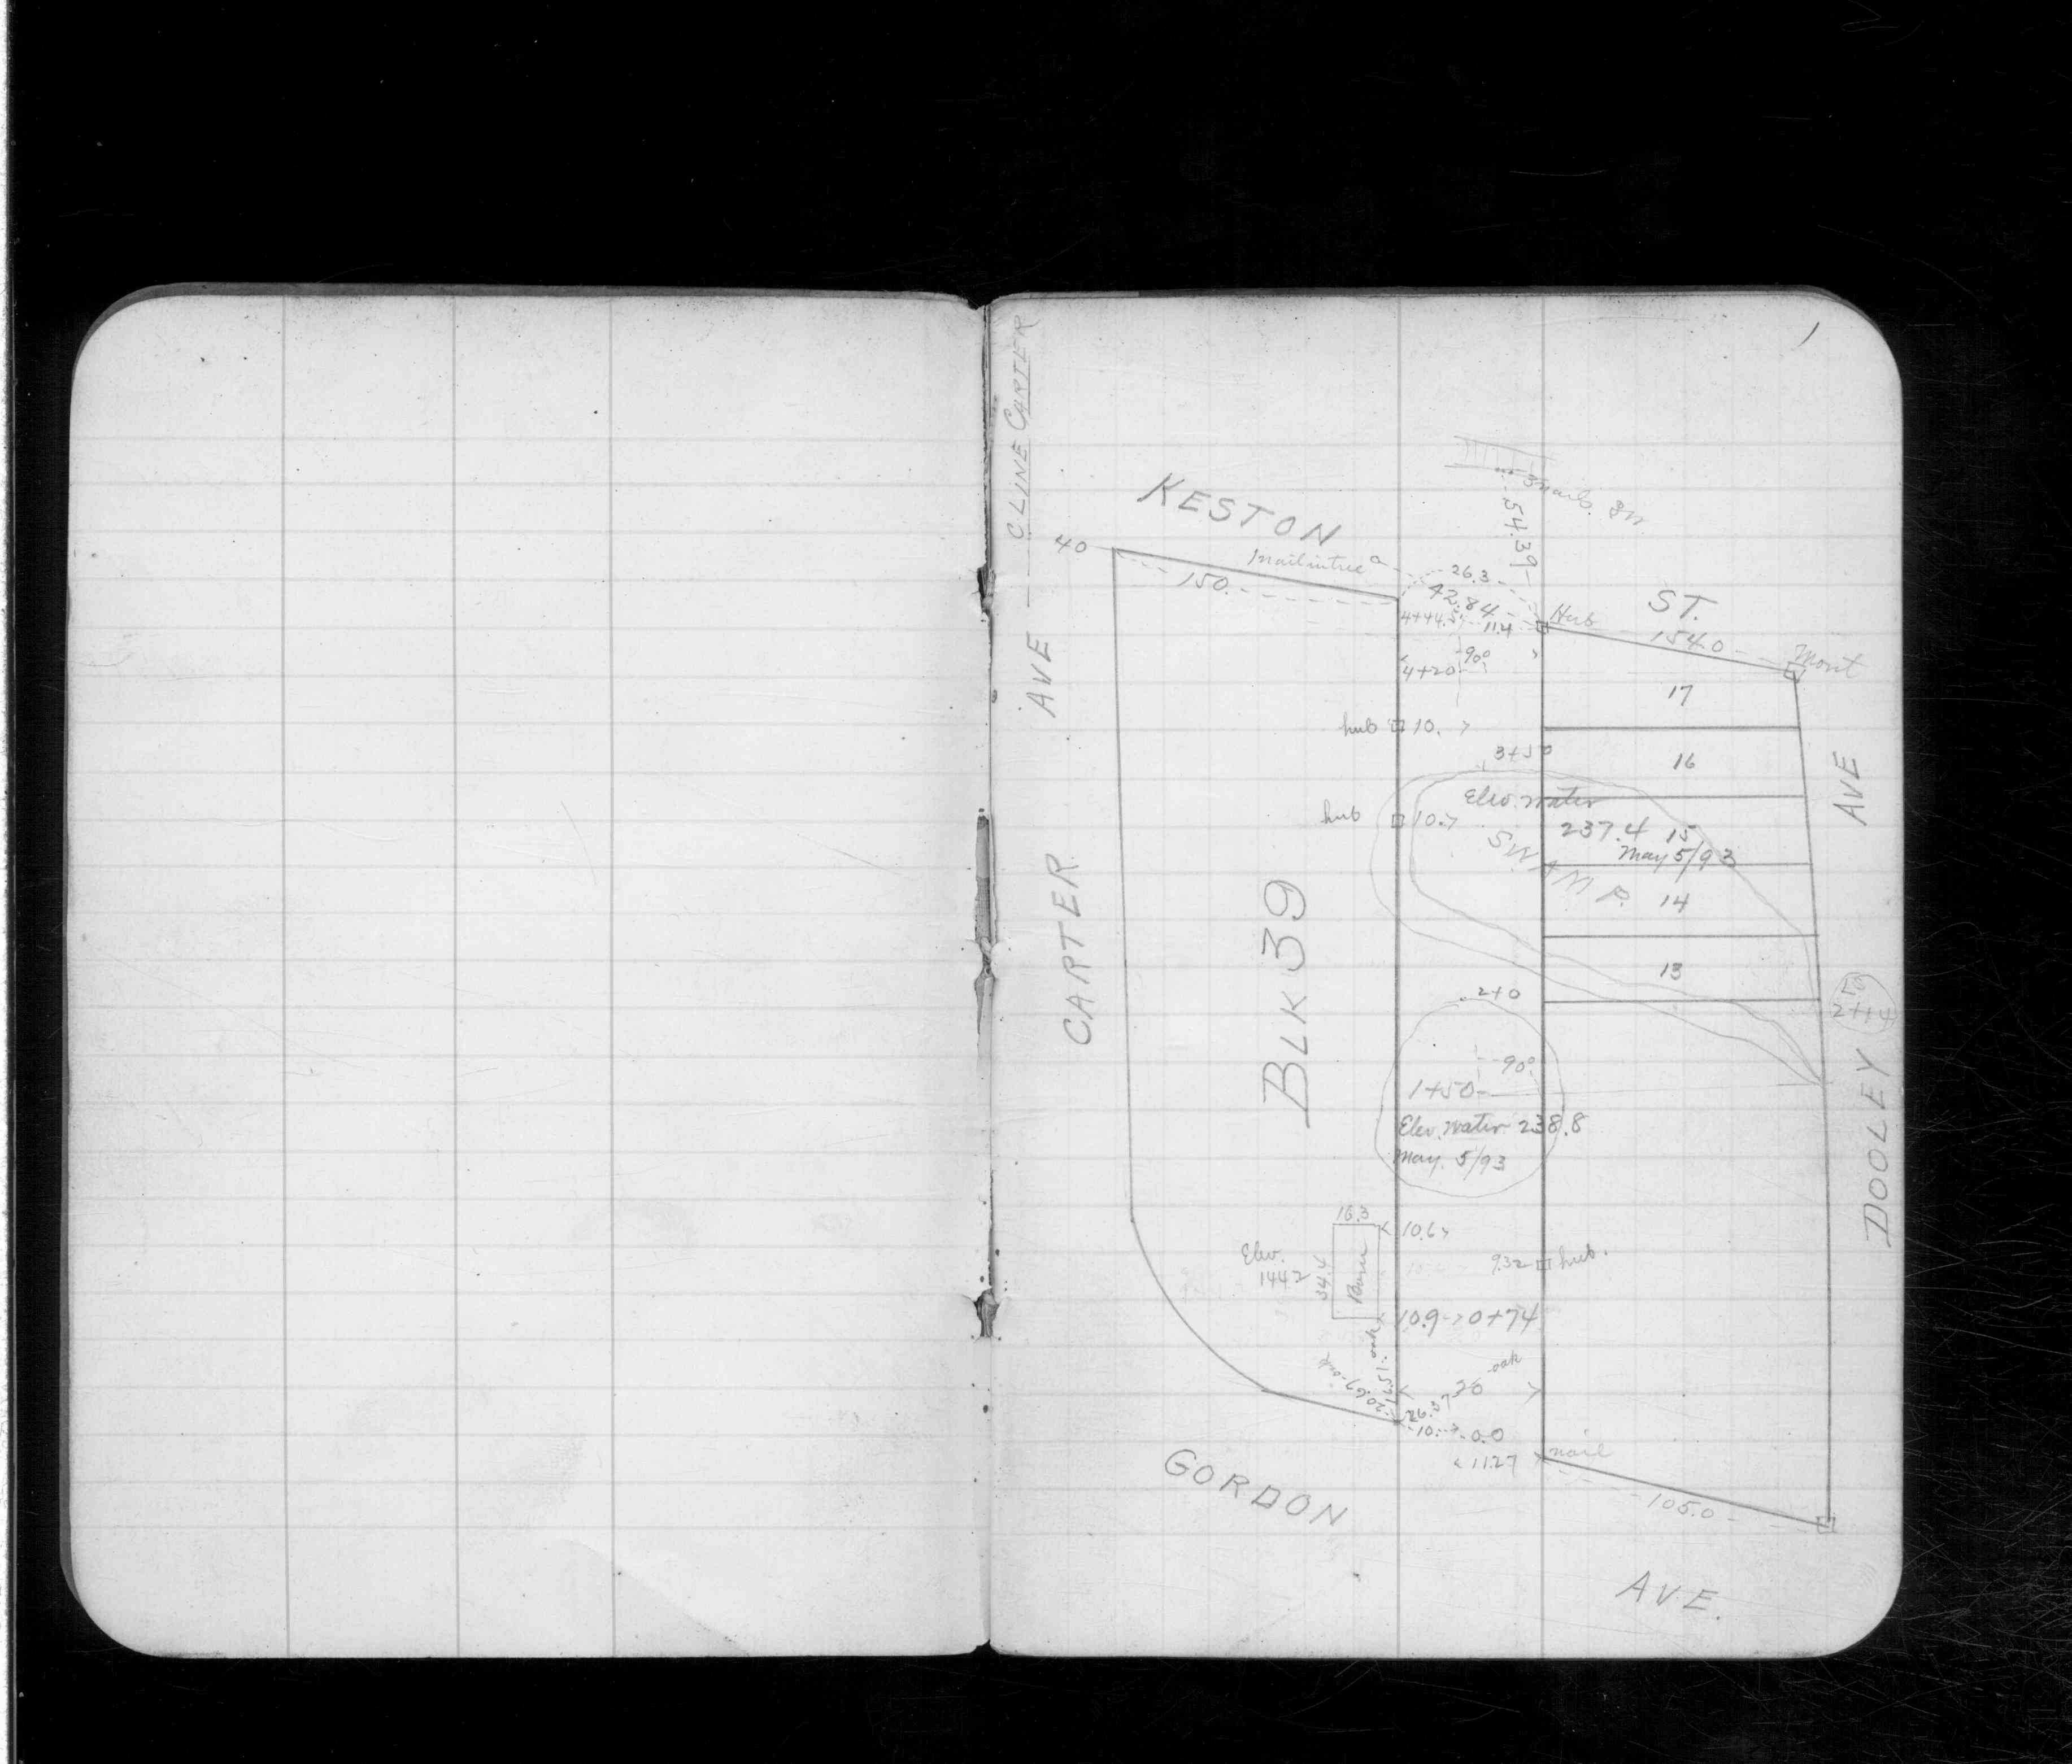 1
C LINE CARTER
AVE
CARTER
KESTON
ST.
54.39
40
150.
nail in tree
26.3
42.84
4+44.5
11.4
Hub
154.0
Mont
90°
4+20
17
hub 10.
3+50
16
AVE
Elev. water
237.4
15
May 5/93
hub 10.7
SWAMP.
14
BLK 39
13
2+0
50
2+14
90°
1+50
Elev. water 238.8
May. 5/93
DOOLEY
16.3
10.6
Elev.
144.2
34.4
Barn
9.32 hub.
10.9 0+74
oak
oak
oak
16.51
20.67
26
26.37
10. 0.0
11.27
nail
105.0
GORDON
AVE.